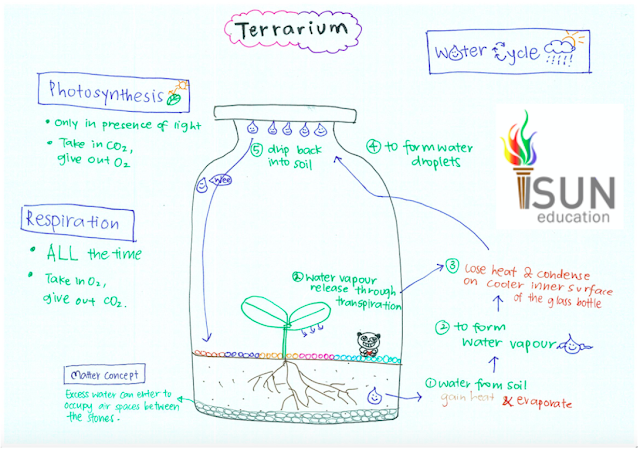 Terrarium
Water Cycle
Photosynthesis
• Only in presence of light
• Take in CO₂,
give out O₂
Respiration
• ALL the time
• Take in O₂,
give out CO₂.
Matter Concept
Excess water can enter to
occupy air spaces between
the stones.
⑤ drip back
into soil
wee
② water vapour
release through
transpiration
④ to form water
droplets
③ Lose heat & condense
on cooler inner surface
of the glass bottle
② to form
water vapour
① water from soil
gain heat & evaporate
iSUN
education